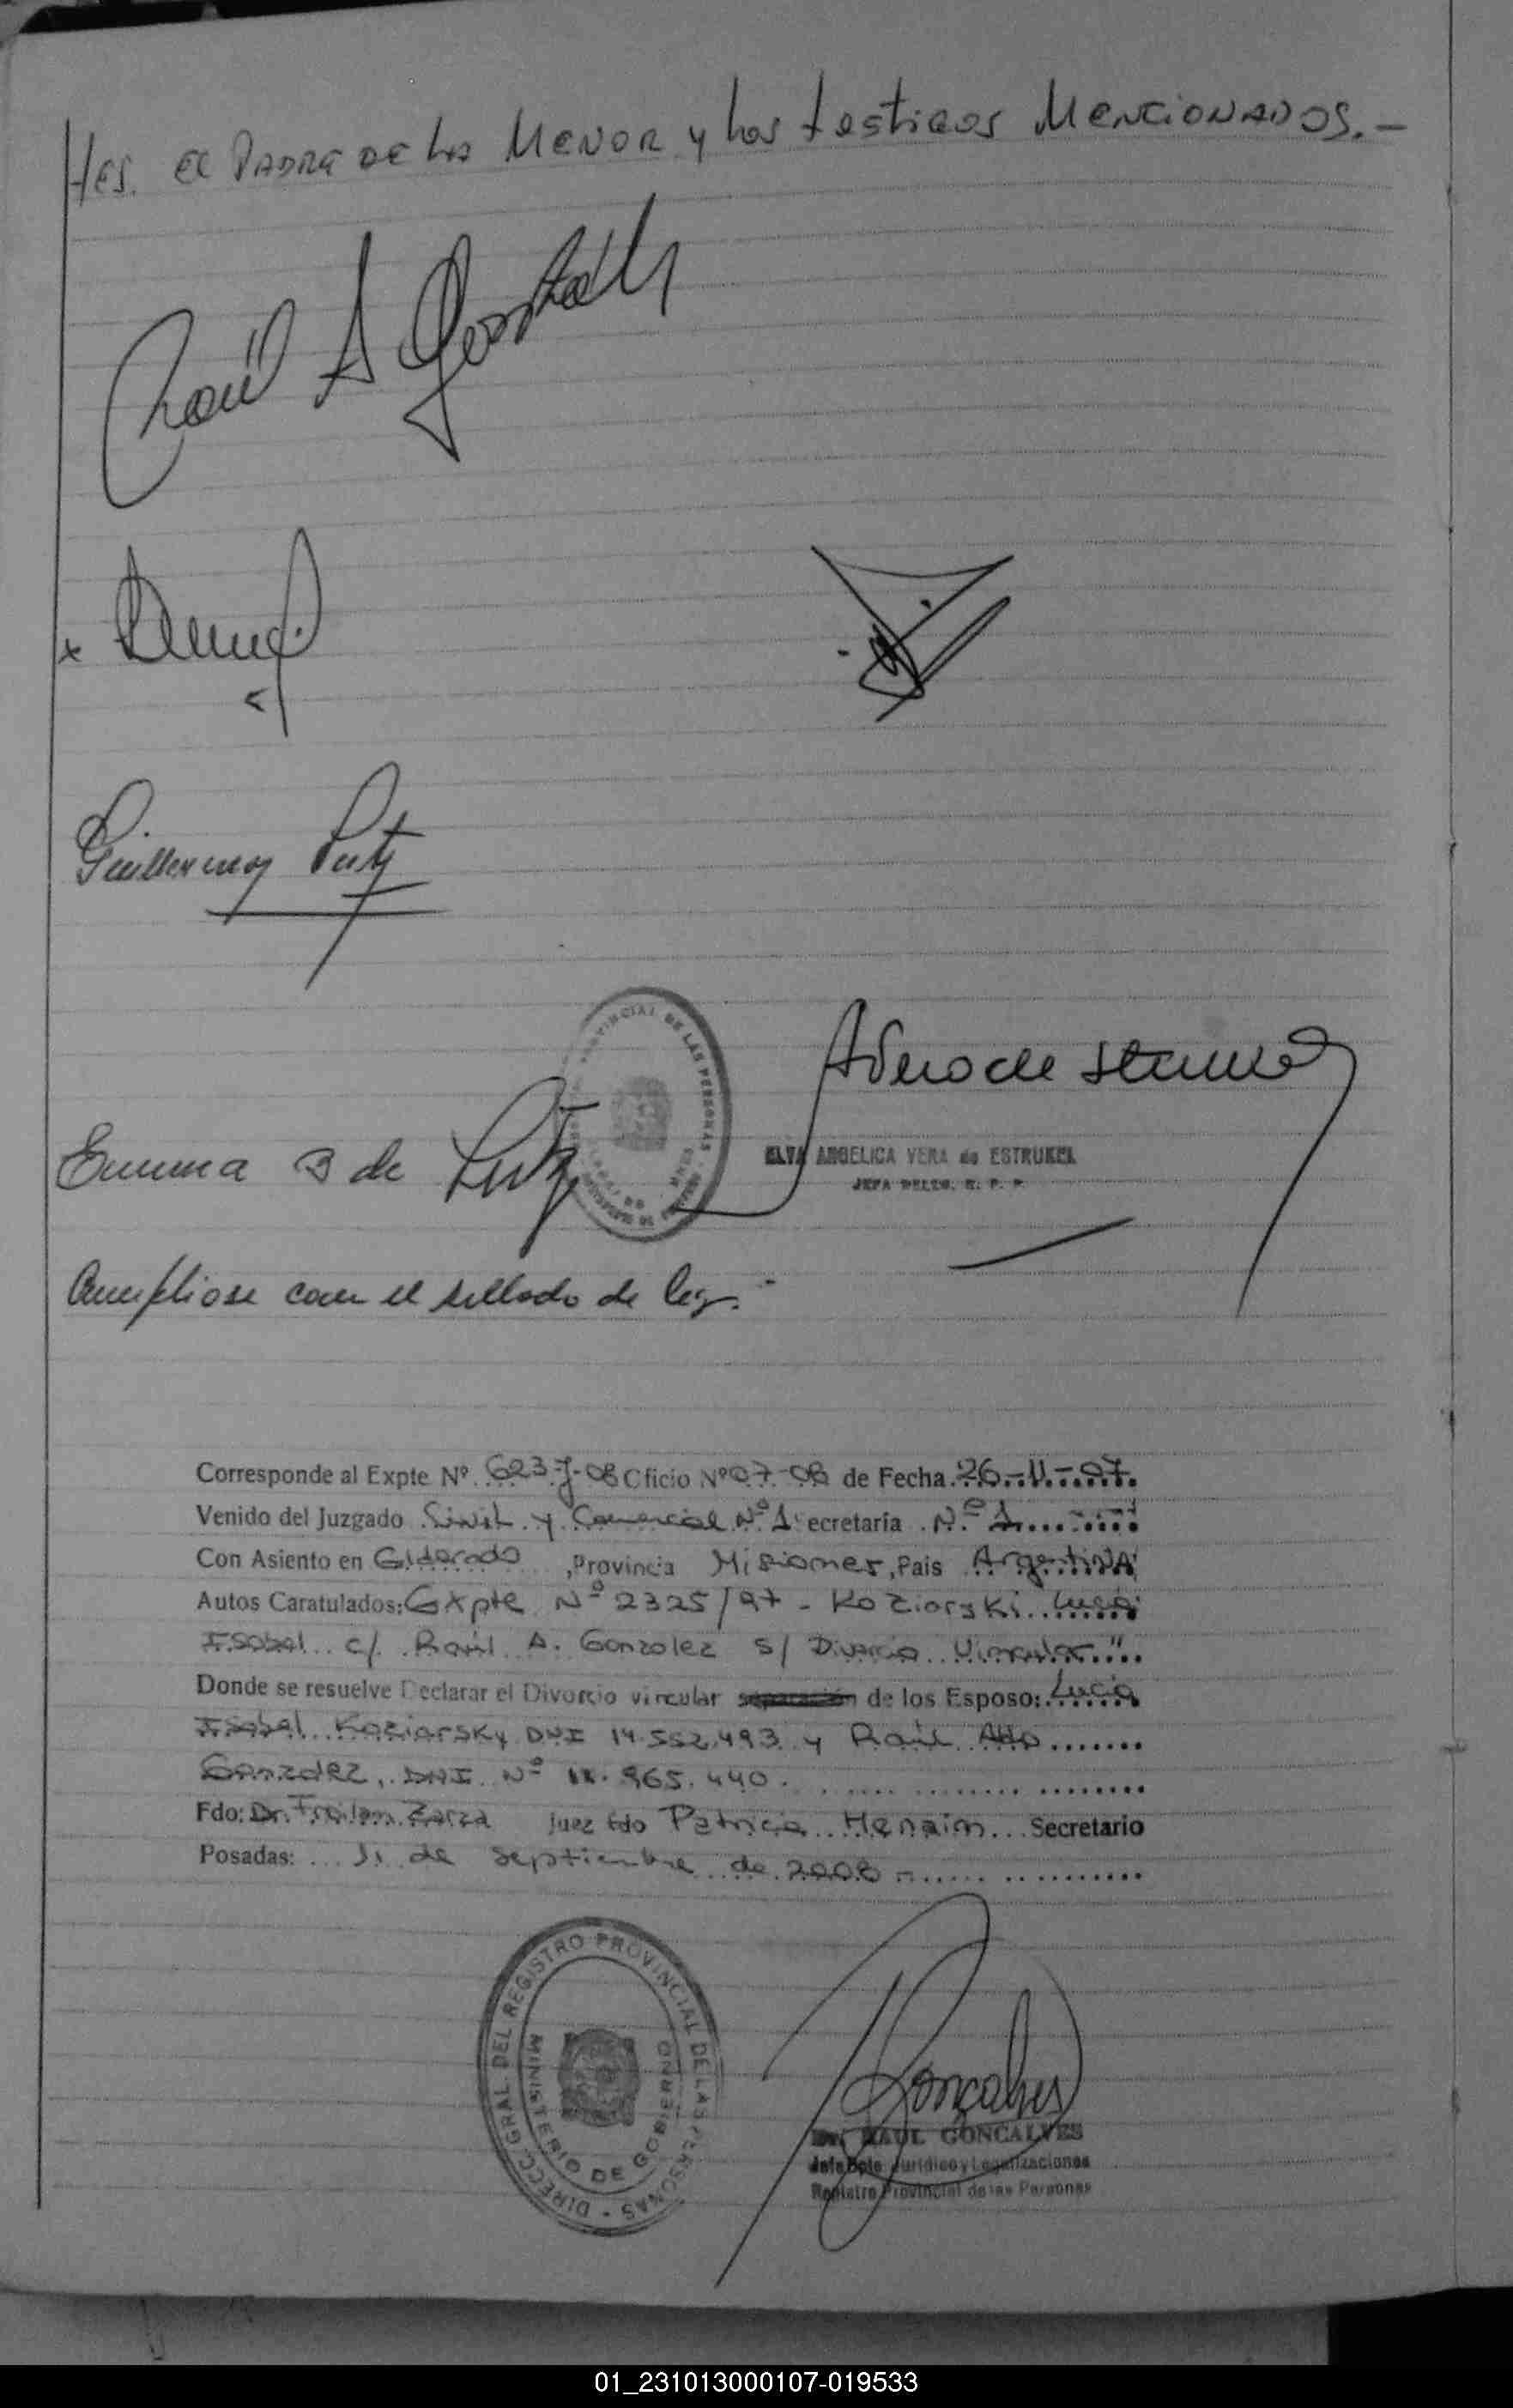 tes. El Padre de la Menor y los testigos Mencionados.-
Raúl A Gonzalez
x
Guillermo Lutz
Emma B de Lutz
PROVINCIAL DE LAS PERSONAS
ELVA ANGELICA VERA de ESTRUKEL
JEFA DELEG. R. P. P.
Cumpliose con el sellado de ley.-
Corresponde al Expte Nº 623-J-08 Oficio Nº 07-08 de Fecha 26-11-07.
Venido del Juzgado Sivil y Comercial Nº 1 ecretaría Nº 1
Con Asiento en Eldorado, Provincia Misiones, Pais Argentina
Autos Caratulados: Expte Nº 2325/97 - Koziarski Lucia
Isabel c/ Raúl A. Gonzalez s/ Divorcio Vincular"
Donde se resuelve Declarar el Divorcio vincular separación de los Esposo: Lucia
Isabel Koziarsky DNI 14.552.493 y Raúl Aldo
Gonzalez, DNI Nº .965.440.
Fdo: Dr. Froilan Zarza Juez Fdo Patricia Henaim Secretario
Posadas: 11 de Septiembre de 2008-
DIRECC. GRAL. DEL REGISTRO PROVINCIAL DE LAS PERSONAS - MINISTERIO DE GOBIERNO
Goncalves
RAUL GONCALVES
Jefe Dpto Jurídico y Legalizaciones
Registro Provincial de las Personas
01_231013000107-019533